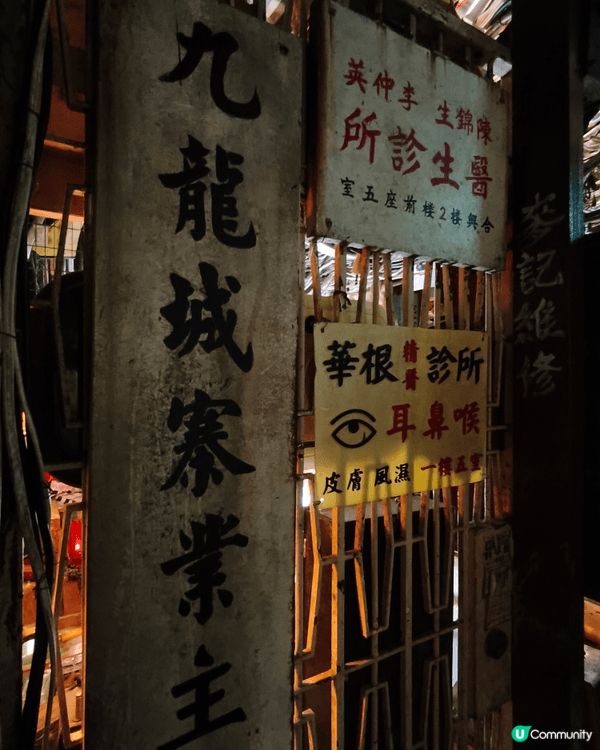 九龍城寨業主
陳錦生 李仲英
醫生診所
合興樓2樓前座五室
華根 精醫 診所
耳鼻喉
皮膚 風濕 一樓五室
記維修
U Community